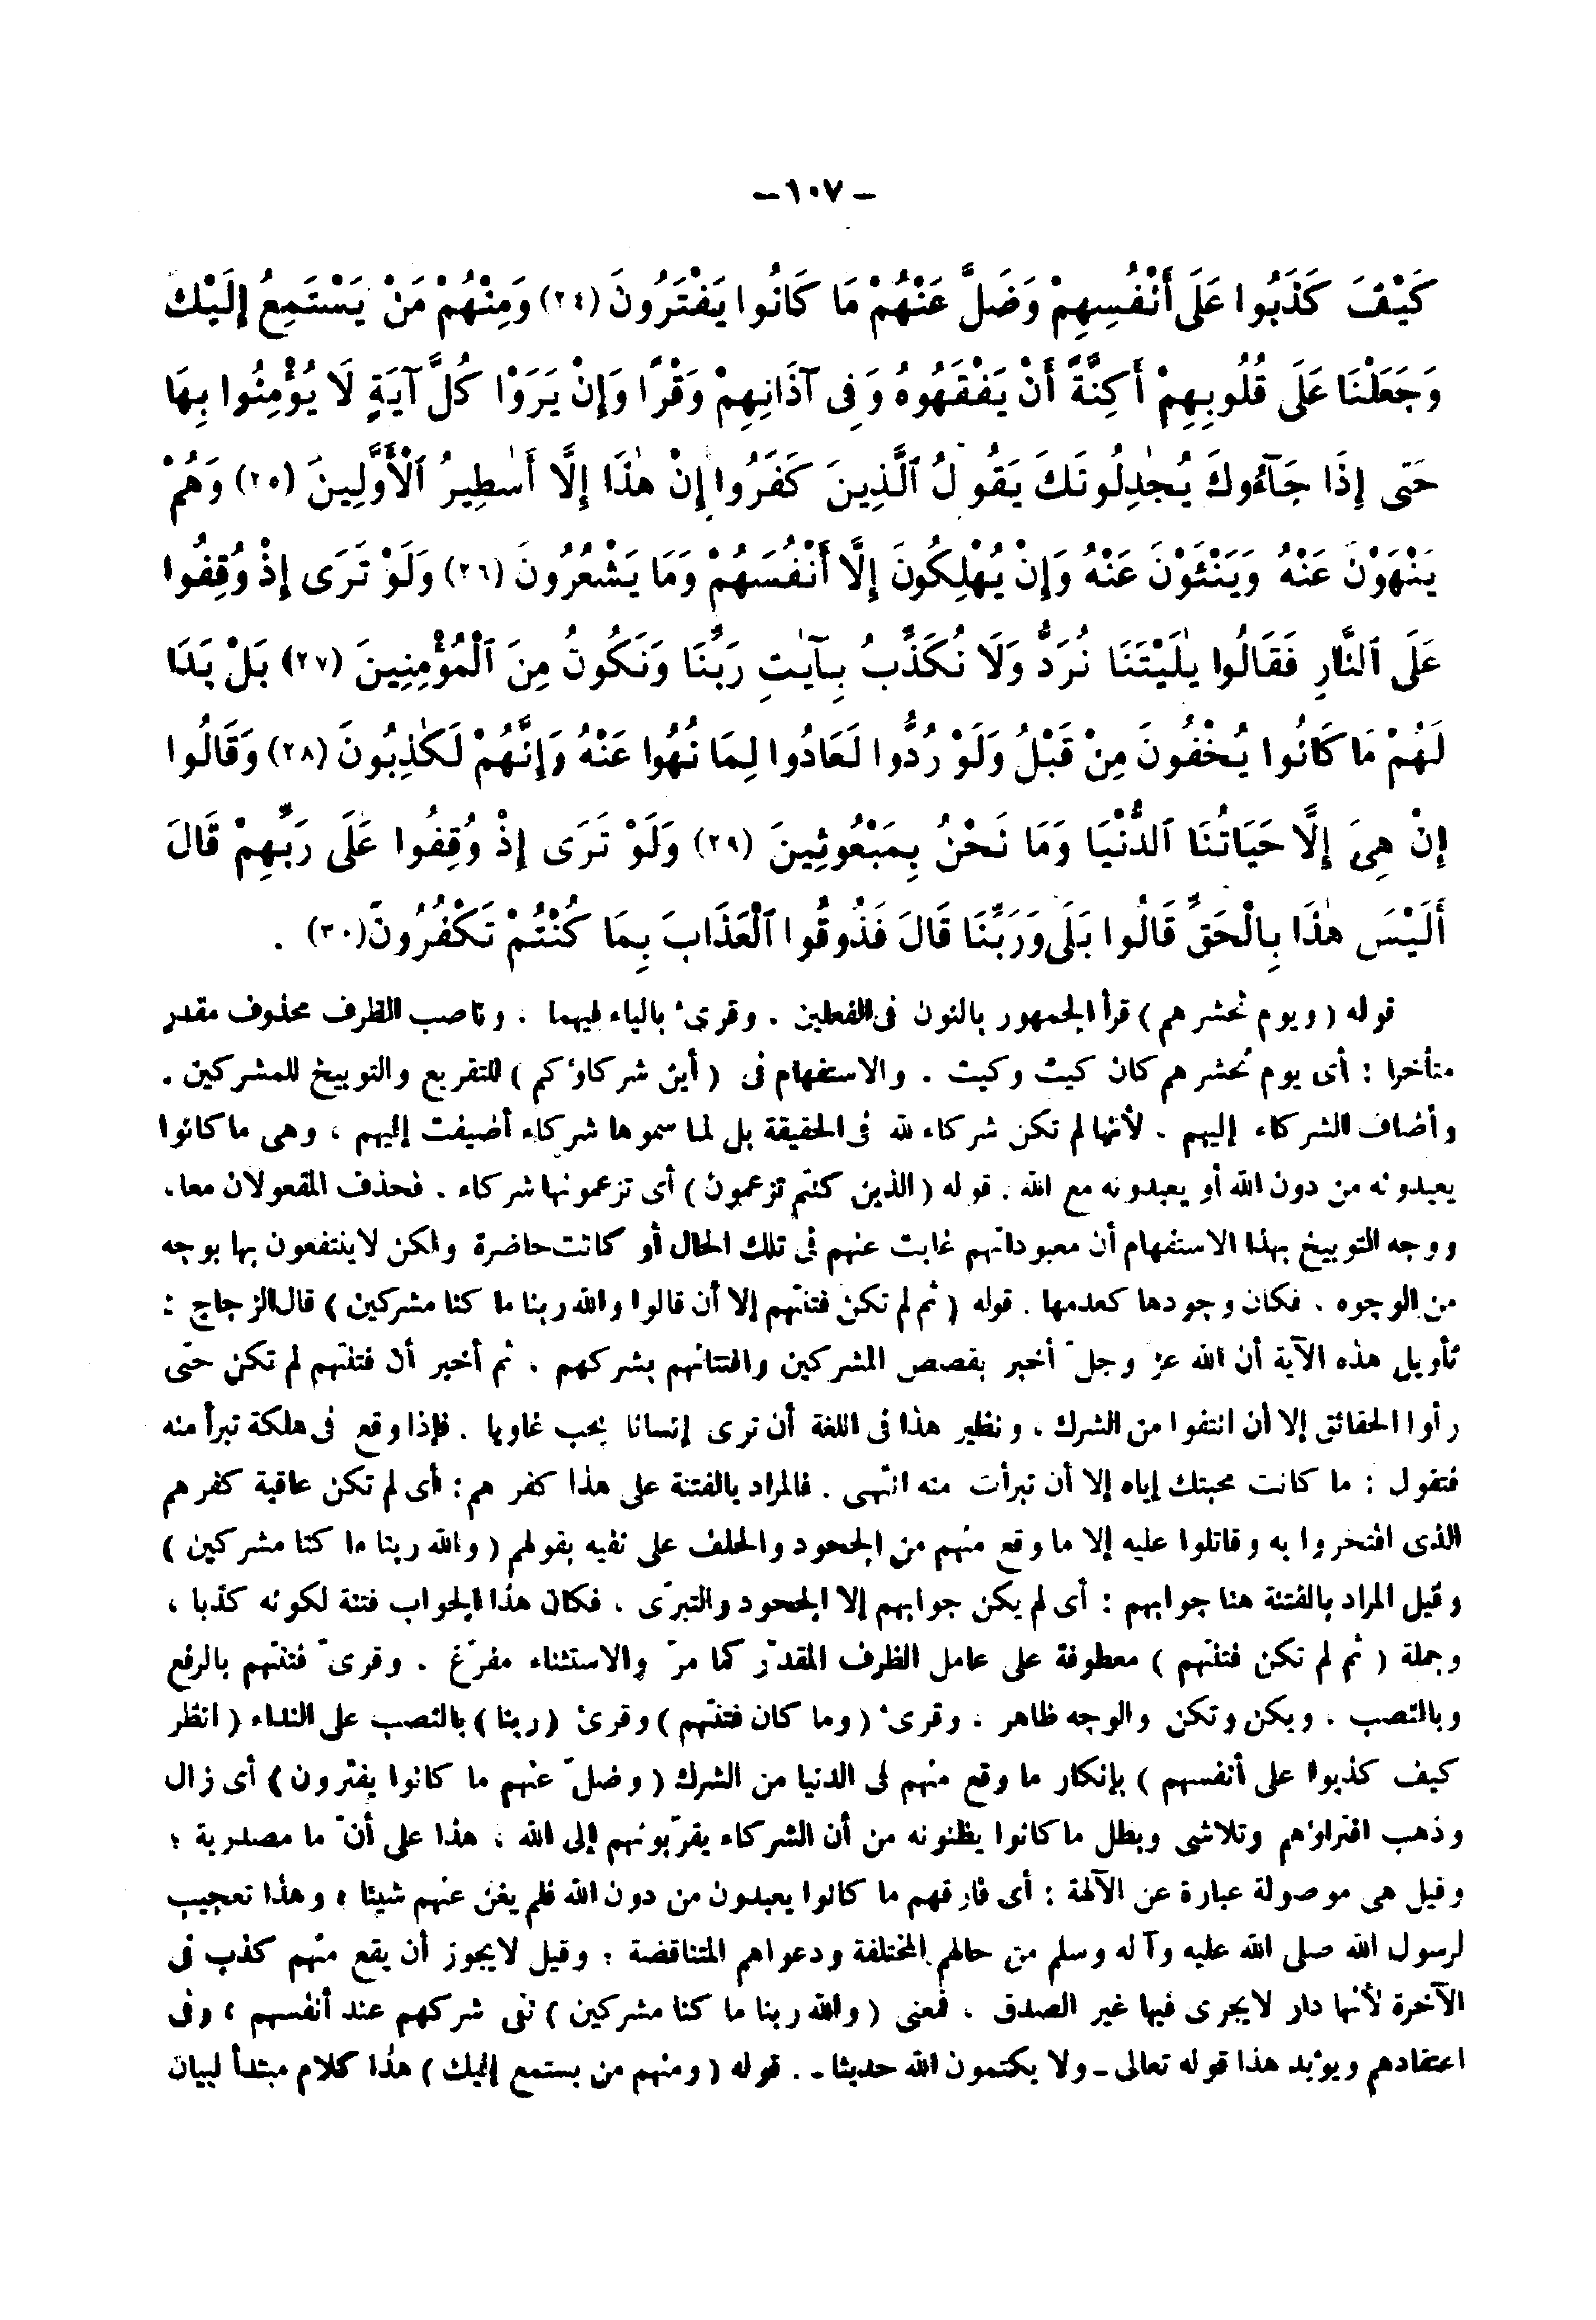 – ١٠٧ –
كَيْفَ كَذَبُوا عَلَى أَنْفُسِهِمْ وَضَلَّ عَنْهُمْ مَا كَانُوا يَفْتَرُونَ (٢٤) وَمِنْهُمْ مَنْ يَسْتَمِعُ إِلَيْكَ
وَجَعَلْنَا عَلَى قُلُوبِهِمْ أَكِنَّةً أَنْ يَفْقَهُوهُ وَفِى آذَانِهِمْ وَقْرًا وَإِنْ يَرَوْا كُلَّ آيَةٍ لَا يُؤْمِنُوا بِهَا
حَتَّى إِذَا جَآءُوكَ يُجٰدِلُونَكَ يَقُولُ ٱلَّذِينَ كَفَرُوا إِنْ هٰذَا إِلَّا أَسٰطِيرُ ٱلْأَوَّلِينَ (٢٥) وَهُمْ
يَنْهَوْنَ عَنْهُ وَيَنْئَوْنَ عَنْهُ وَإِنْ يُهْلِكُونَ إِلَّا أَنْفُسَهُمْ وَمَا يَشْعُرُونَ (٢٦) وَلَوْ تَرَى إِذْ وُقِفُوا
عَلَى ٱلنَّارِ فَقَالُوا يٰلَيْتَنَا نُرَدُّ وَلَا نُكَذِّبُ بِـآيٰتِ رَبِّنَا وَنَكُونُ مِنَ ٱلْمُؤْمِنِينَ (٢٧) بَلْ بَدَا
لَهُمْ مَا كَانُوا يُخْفُونَ مِنْ قَبْلُ وَلَوْ رُدُّوا لَعَادُوا لِمَا نُهُوا عَنْهُ وَإِنَّهُمْ لَكٰذِبُونَ (٢٨) وَقَالُوا
إِنْ هِىَ إِلَّا حَيَاتُنَا ٱلدُّنْيَا وَمَا نَحْنُ بِمَبْعُوثِينَ (٢٩) وَلَوْ تَرَى إِذْ وُقِفُوا عَلَى رَبِّهِمْ قَالَ
أَلَيْسَ هٰذَا بِالْحَقِّ قَالُوا بَلَى وَرَبِّنَا قَالَ فَذُوقُوا ٱلْعَذَابَ بِمَا كُنْتُمْ تَكْفُرُونَ (٣٠) .
قوله ( ويوم نحشرهم ) قرأ الجمهور بالنون فى الفعلين . وقرىء بالياء فيهما . وناصب الظرف محذوف مقدر
متأخرا : أى يوم نحشرهم كان كيت وكيت . والاستفهام فى ( أين شركاؤكم ) للتقريع والتوبيخ للمشركين .
وأضاف الشركاء إليهم . لأنها لم تكن شركاء لله فى الحقيقة بل لما سموها شركاء أضيفت إليهم ، وهى ما كانوا
يعبدونه من دون الله أو يعبدونه مع الله . قوله ( الذين كنتم تزعمون ) أى تزعمونها شركاء . فحذف المفعولان معا ،
ووجه التوبيخ بهذا الاستفهام أن معبوداتهم غابت عنهم فى تلك الحال أو كانت حاضرة ولكن لا ينتفعون بها بوجه
من الوجوه . فكان وجودها كعدمها . قوله ( ثم لم تكن فتنتهم إلا أن قالوا والله ربنا ما كنا مشركين ) قال الزجاج :
تأويل هذه الآية أن الله عز وجلّ أخبر بقصص المشركين وافتتانهم بشركهم . ثم أخبر أن فتنتهم لم تكن حتى
رأوا الحقائق إلا أن انتفوا من الشرك ، ونظير هذا فى اللغة أن ترى إنسانا يحب غاويا . فإذا وقع فى هلكة تبرأ منه
فتقول : ما كانت محبتك إياه إلا أن تبرأت منه انتهى . فالمراد بالفتنة على هذا كفرهم : أى لم تكن عاقبة كفرهم
الذى افتخروا به وقاتلوا عليه إلا ما وقع منهم من الجحود والحلف على نفيه بقولهم ( والله ربنا ما كنا مشركين )
وقيل المراد بالفتنة هنا جوابهم : أى لم يكن جوابهم إلا الجحود والتبرّى . فكان هذا الجواب فتنة لكونه كذبا ،
وجملة ( ثم لم تكن فتنتهم ) معطوفة على عامل الظرف المقدّر كما مرّ والاستثناء مفرّغ . وقرىّ فتنتهم بالرفع
وبالنصب . ويكن وتكن والوجه ظاهر . وقرىء ( وما كان فتنتهم ) وقرىء ( ربنا ) بالنصب على النداء ( انظر
كيف كذبوا على أنفسهم ) بإنكار ما وقع منهم فى الدنيا من الشرك ( وضلّ عنهم ما كانوا يفترون ) أى زال
وذهب افتراؤهم وتلاشى وبطل ما كانوا يظنونه من أن الشركاء يقرّبونهم إلى الله ، هذا على أنّ ما مصدرية ؛
وقيل هى موصولة عبارة عن الآلهة : أى فارقهم ما كانوا يعبدون من دون الله فلم يغن عنهم شيئا ؛ وهذا تعجيب
لرسول الله صلى الله عليه وآله وسلم من حالهم المختلفة ودعواهم المتناقضة ؛ وقيل لا يجوز أن يقع منهم كذب فى
الآخرة لأنها دار لا يجرى فيها غير الصدق . فمعنى ( والله ربنا ما كنا مشركين ) نفى شركهم عند أنفسهم ، وفى
اعتقادهم ويؤيد هذا قوله تعالى ـ ولا يكتمون الله حديثا ـ . قوله ( ومنهم من يستمع إليك ) هذا كلام مبتدأ لبيان